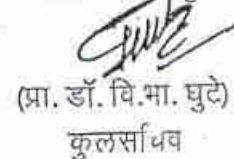 (प्रा. डॉ. वि.भा. घुटे)
कुलसचिव